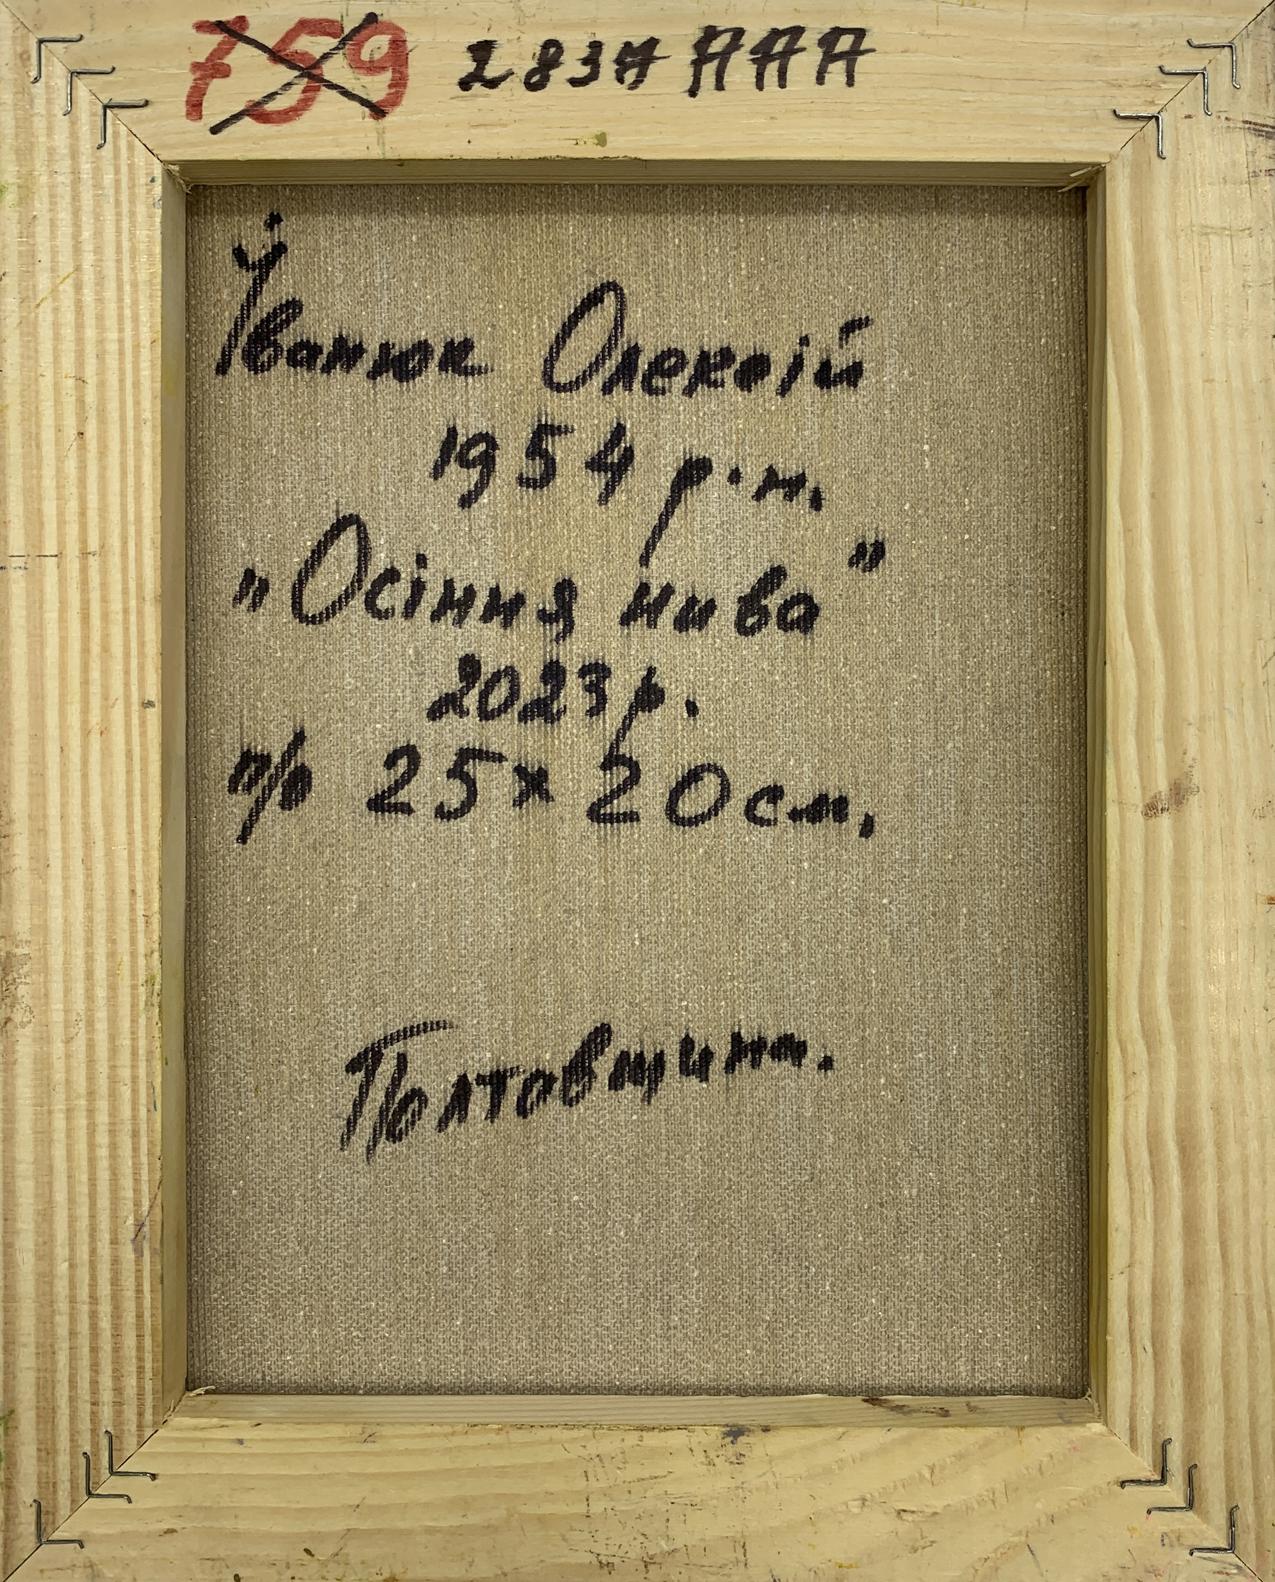 759 283А ААА
Іванюк Олексій
1954 р.н.
"Осіння нива"
2023р.
п/о 25х20см.
Полтавщина.